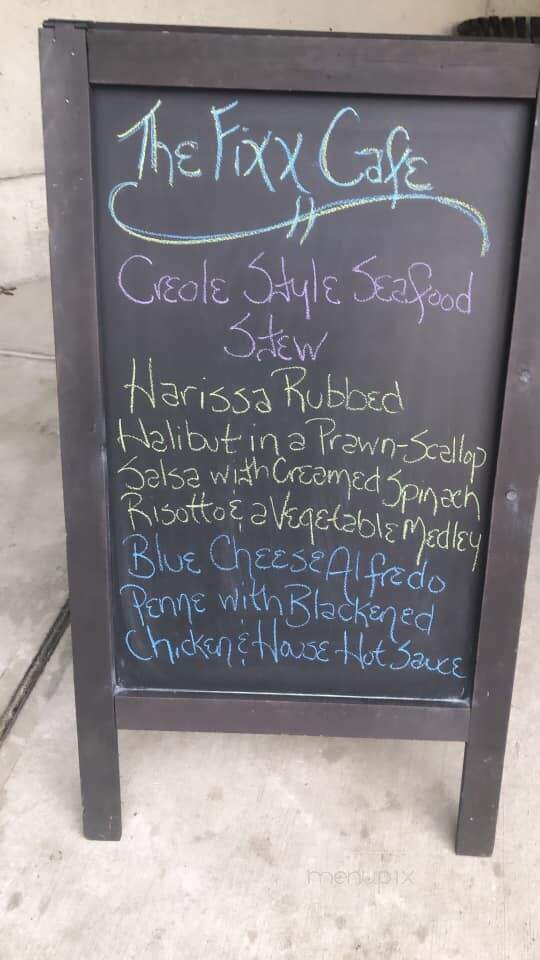 The Fixx Cafe
Creole Style Seafood
Stew
Harissa Rubbed
Halibut in a Prawn-Scallop
Salsa with Creamed Spinach
Risotto & a Vegetable Medley
Blue Cheese Alfredo
Penne with Blackened
Chicken & House Hot Sauce
menupix